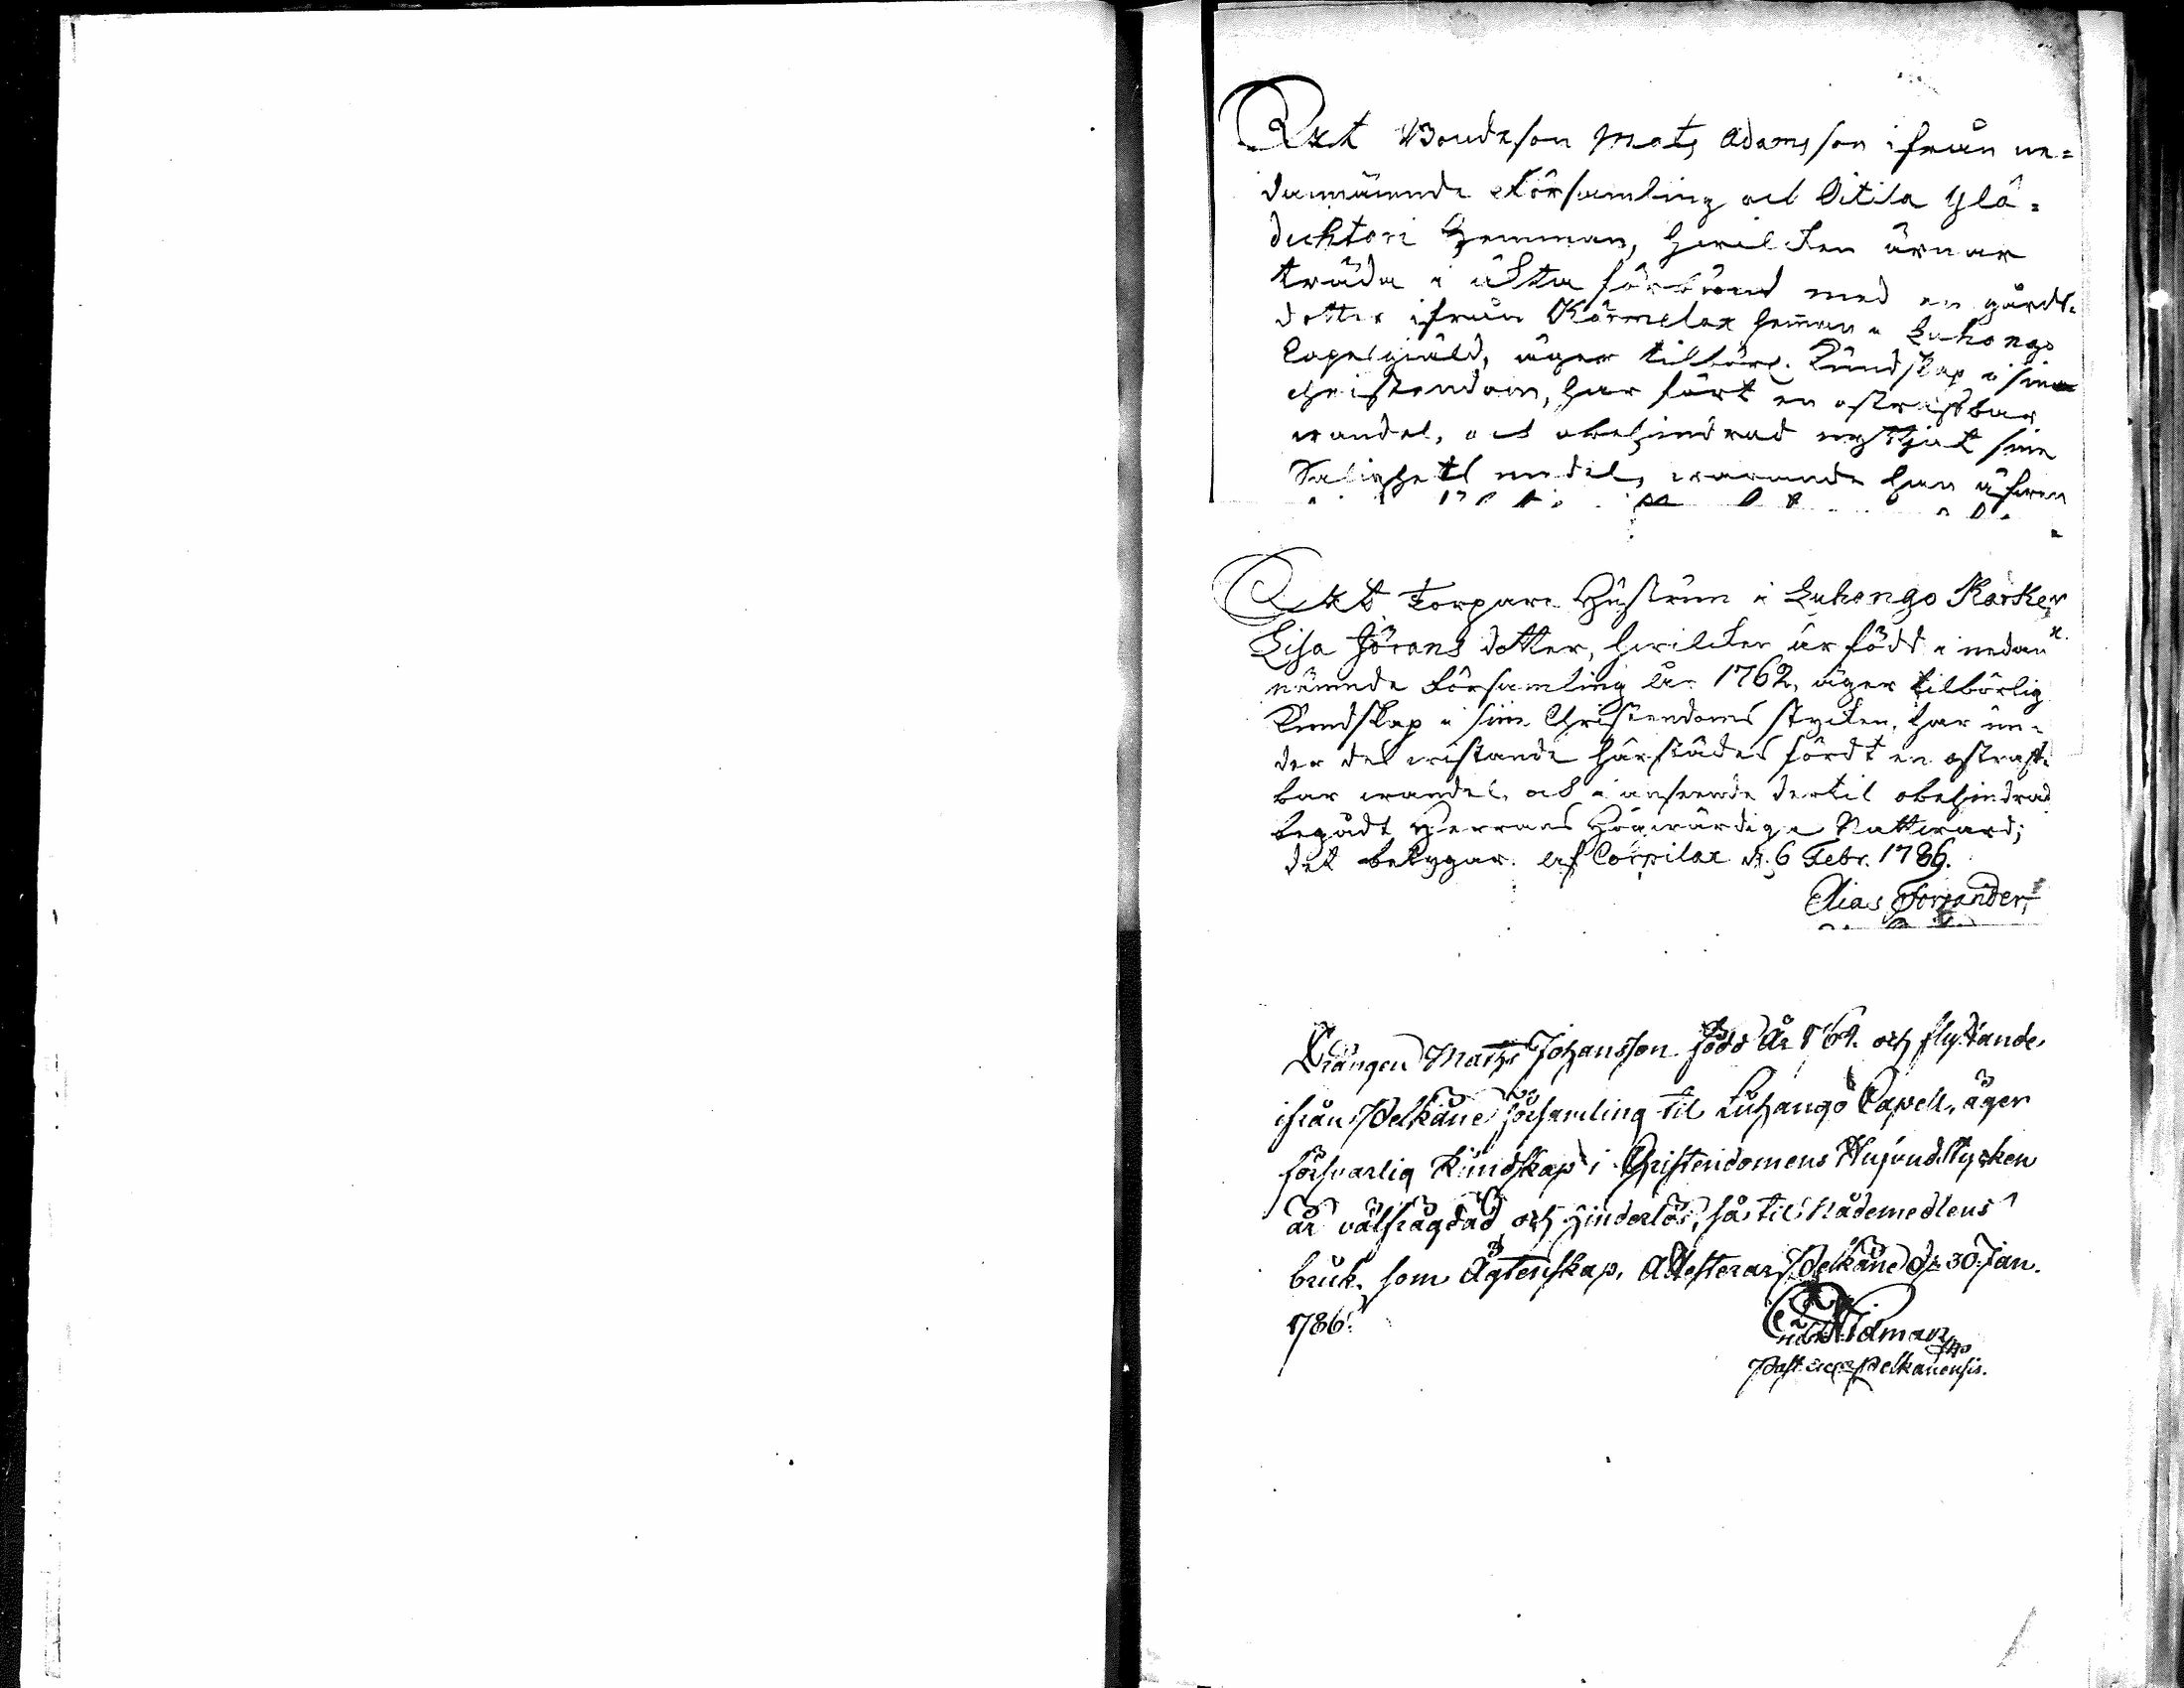 At Bondeson Mats Adamsson ifrån ne=
damnämde Församling och Sitila Ylä=
Hemman, hwilcken ärnar
träda i ächta förbund med en gårds=
dotter ifrån Kärmelax heman i Luhango
Capelgiäld, äger tilbörl. Kundskap i sin
christendom, har fört en ostraffbar
wandel, och obehindrad nyttjat sine
Salighets medel, warande han äfwen
At Torpare Hustrun i Luhango Kärker
Lisa Jörans dotter, hwilcken är född i nedan
nämnde Församling År 1762, äger tilbörlig
Kundskap i sine Christendoms stycken, har un=
der des wistande härstädes fördt en ostraff=
bar wandel, och i anseende dertil obehindrad
begådt Herrans Högwärdige Nattward;
det betygar. Af Corpilax d. 6 Febr. 1786.
Elias
Drängen Matts Johansson född År 176 och flyttande
ifrån Pelkäne församling til Luhango Capell, äger
försvarlig Kundskap i Christendomens Hufvudstycken
är välfrägdad och hinderlös, så til Nådemedlens
bruk, som Ägtenskap, Attesterar Pelkäne d. 30 Jan.
1786.
Widman
Past. Pelkänensis.